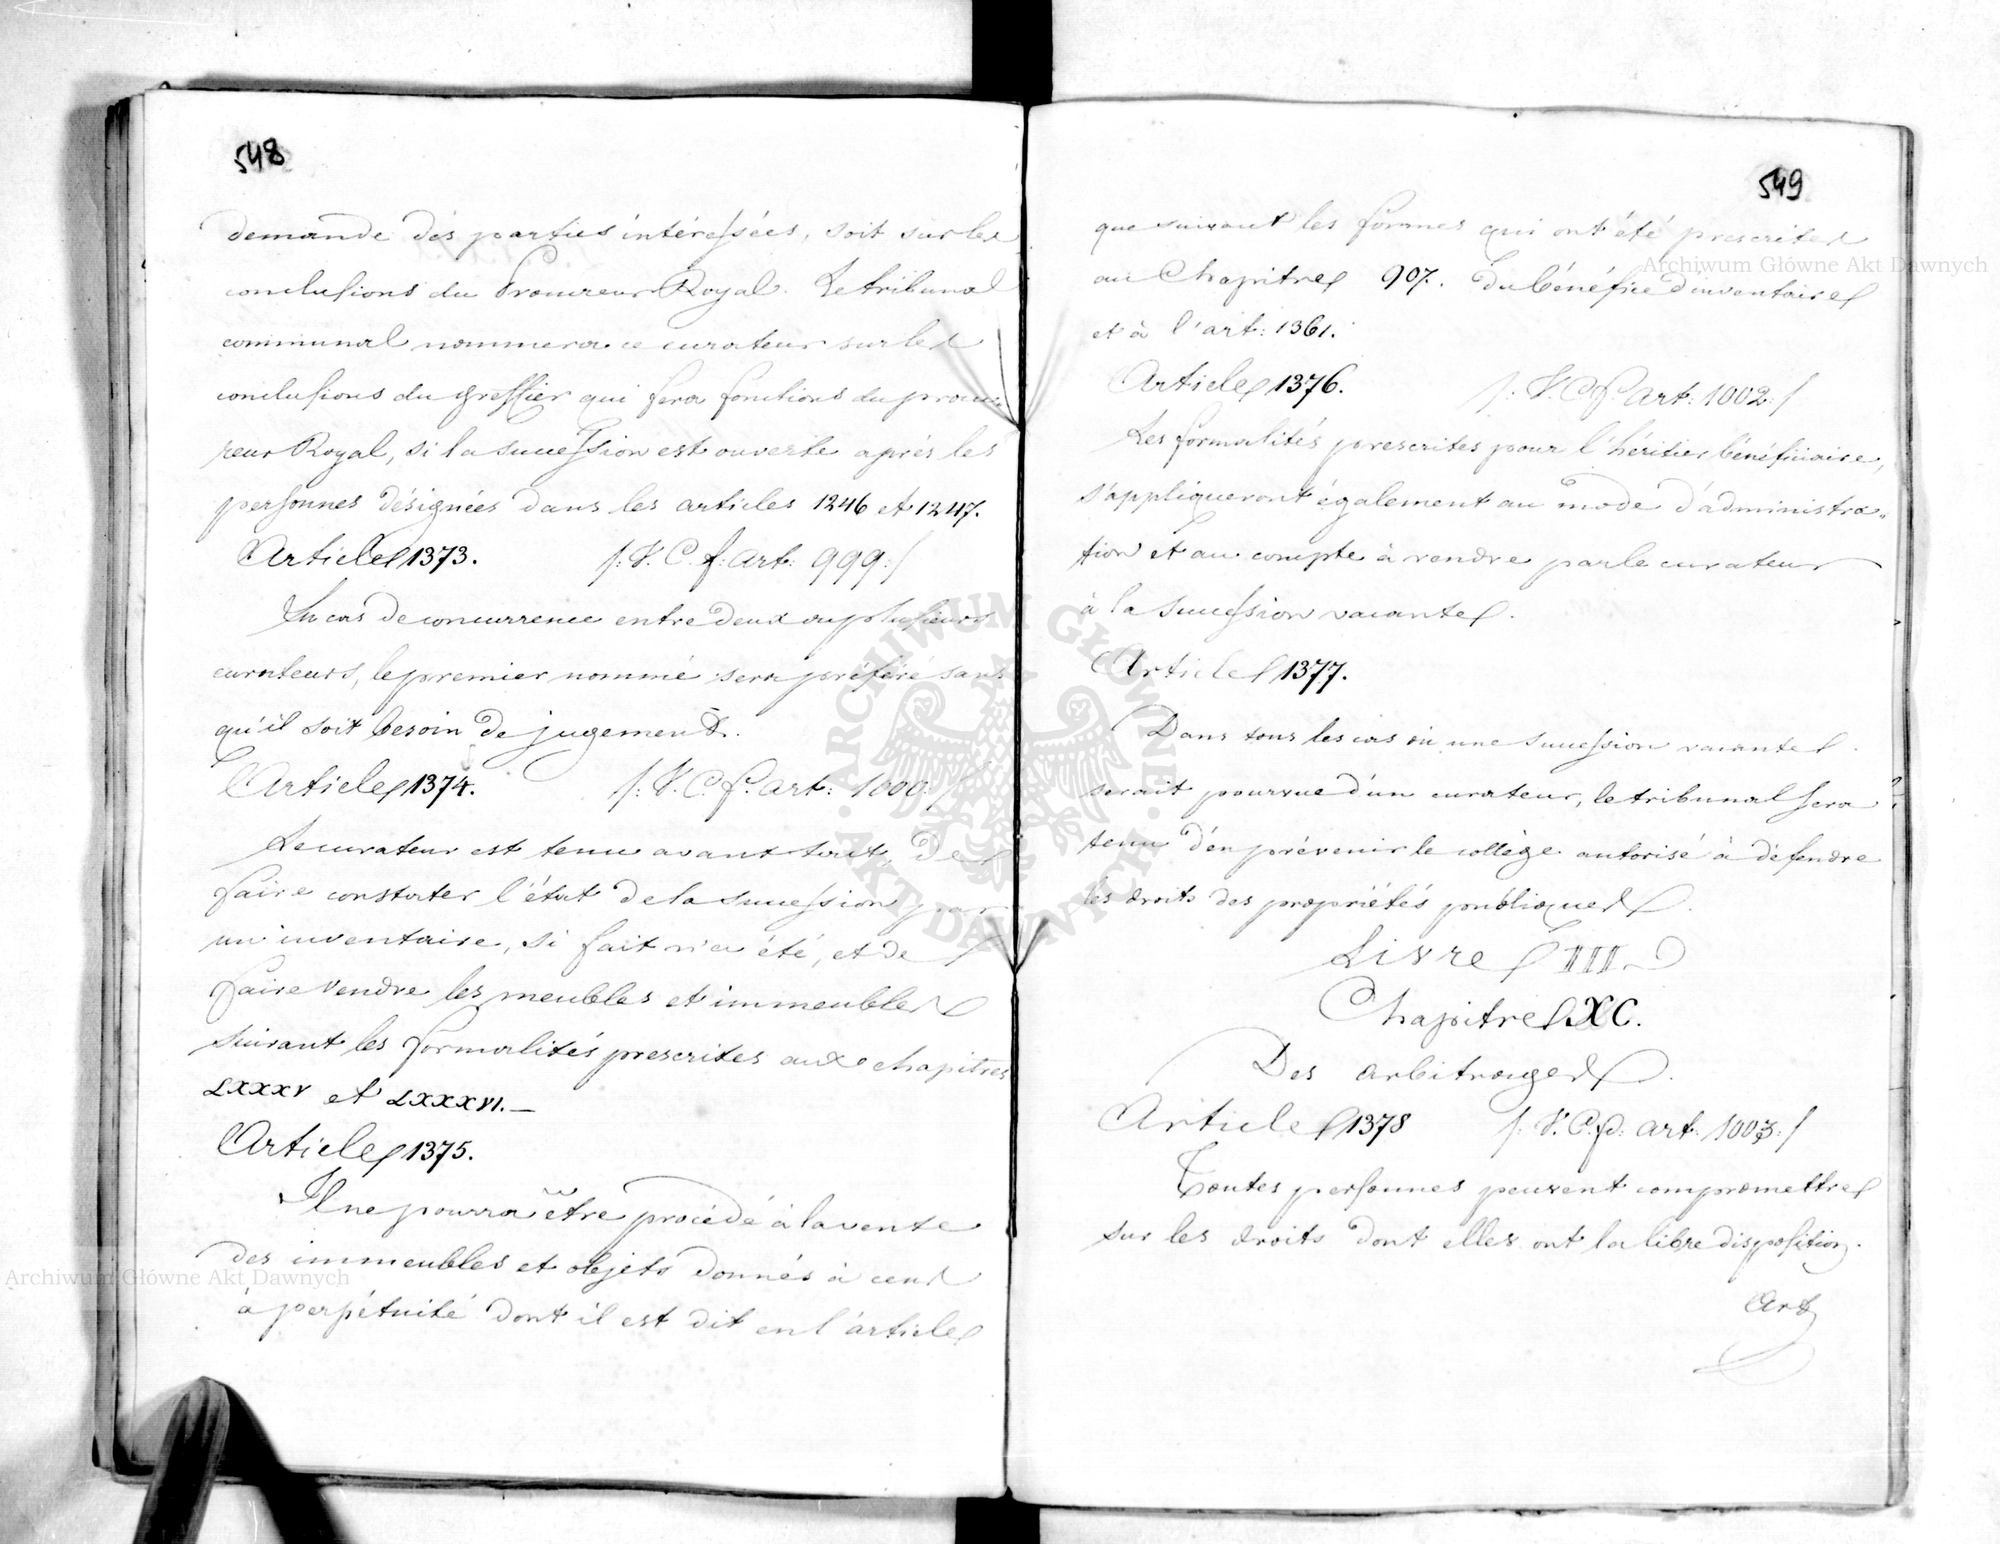 548
demande des parties intéressées, soit sur les
conclusions du Procureur Royal. Le tribunal
communal nommera ce curateur sur les
conclusions du greffier qui fera fonctions du procu-
reur Royal, si la succession est ouverte après les
personnes désignées dans les articles 1246 et 1247.
Article 1373. /: V. C. f. art: 999 :/
En cas de concurrence entre deux ou plusieurs
curateurs, le premier nommé sera préféré sans
qu'il soit besoin de jugement.
Article 1374. /: V. C. f. art: 1000 :/
Le curateur est tenu avant tout, de
faire constater l'état de la succession par
un inventaire, si fait n'a été, et de
faire vendre les meubles et immeubles
suivant les formalités prescrites aux chapitres
LXXXV et LXXXVI. —
Article 1375.
Il ne pourra être procédé à la vente
des immeubles et objets donnés à cens
à perpétuité dont il est dit en l'article
549
que suivant les formes qui ont été prescrites
au Chapitre 907. du bénéfice d'inventaire
et à l'art: 1361.
Article 1376. /: V. C. f. art: 1002 :/
Les formalités prescrites pour l'héritier bénéficiaire,
s'appliqueront également au mode d'administra-
tion et au compte à rendre par le curateur
à la succession vacante.
Article 1377.
Dans tous les cas où une succession vacante
serait pourvue d'un curateur, le tribunal sera
tenu d'en prévenir le collège autorisé à défendre
les droits des propriétés publiques.
Livre III.
Chapitre XC.
Des arbitrages.
Article 1378 /: V. C. p. art: 1003 :/
Toutes personnes peuvent compromettre
sur les droits dont elles ont la libre disposition.
Art
Archiwum Główne Akt Dawnych
Archiwum Główne Akt Dawnych
ARCHIWUM GŁÓWNE AKT DAWNYCH